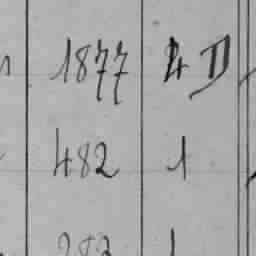 1877 4 D
482 1
282 1